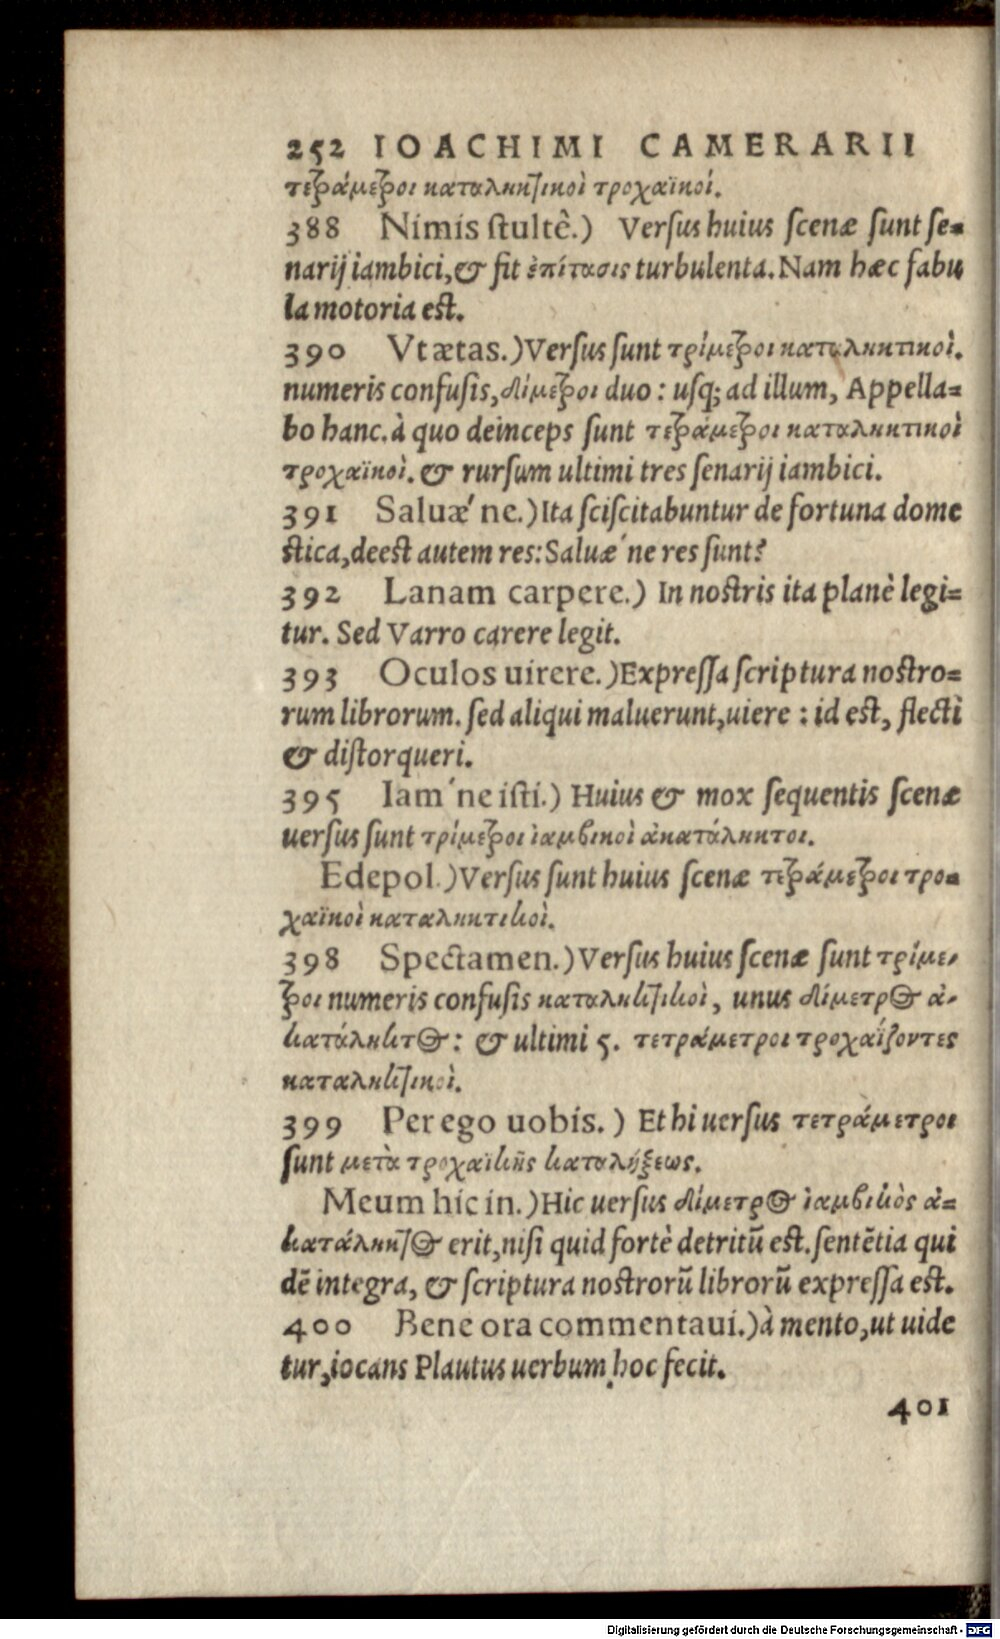 252 IOACHIMI CAMERARII
τετράμετροι καταληκτικοὶ τροχαϊκοί.
388 Nimis stultê.) Versus huius scenæ sunt se=
narij iambici, & fit ἐπίτασις turbulenta. Nam hæc fabu
la motoria est.
390 Vt ætas.) Versus sunt τρίμετροι καταληκτικοὶ.
numeris confusis, δίμετροι duo: usq; ad illum, Appella=
bo hanc. à quo deinceps sunt τετράμετροι καταληκτικοὶ
τροχαϊκοὶ. & rursum ultimi tres senarij iambici.
391 Saluæ´ne.) Ita sciscitabuntur de fortuna dome
stica, deest autem res: Saluæ´ne res sunt?
392 Lanam carpere.) In nostris ita planè legi=
tur. Sed Varro carere legit.
393 Oculos uirere.) Expressa scriptura nostro=
rum librorum. sed aliqui maluerunt, uiere: id est, flecti
& distorqueri.
395 Iam´ne isti.) Huius & mox sequentis scenæ
uersus sunt τρίμετροι ἰαμβικοὶ ἀκατάληκτοι.
Edepol.) Versus sunt huius scenæ τετράμετροι τρο=
χαϊκοὶ καταληκτικοὶ.
398 Spectamen.) Versus huius scenæ sunt τρίμε-
τροι numeris confusis καταληκτικοὶ, unus δίμετρος ἀ-
κατάληκτος: & ultimi 5. τετράμετροι τροχαΐζοντες
καταληκτικοὶ.
399 Per ego uobis.) Et hi uersus τετράμετροι
sunt μετὰ τροχαϊκῆς καταλήξεως.
Meum hic in.) Hic uersus δίμετρος ἰαμβικὸς ἀ=
κατάληκτος erit, nisi quid fortè detritũ est. sentẽtia qui
dẽ integra, & scriptura nostrorũ librorũ expressa est.
400 Bene ora commentaui.) à mento, ut uide
tur, iocans Plautus uerbum hoc fecit.
401
Digitalisierung gefördert durch die Deutsche Forschungsgemeinschaft - DFG